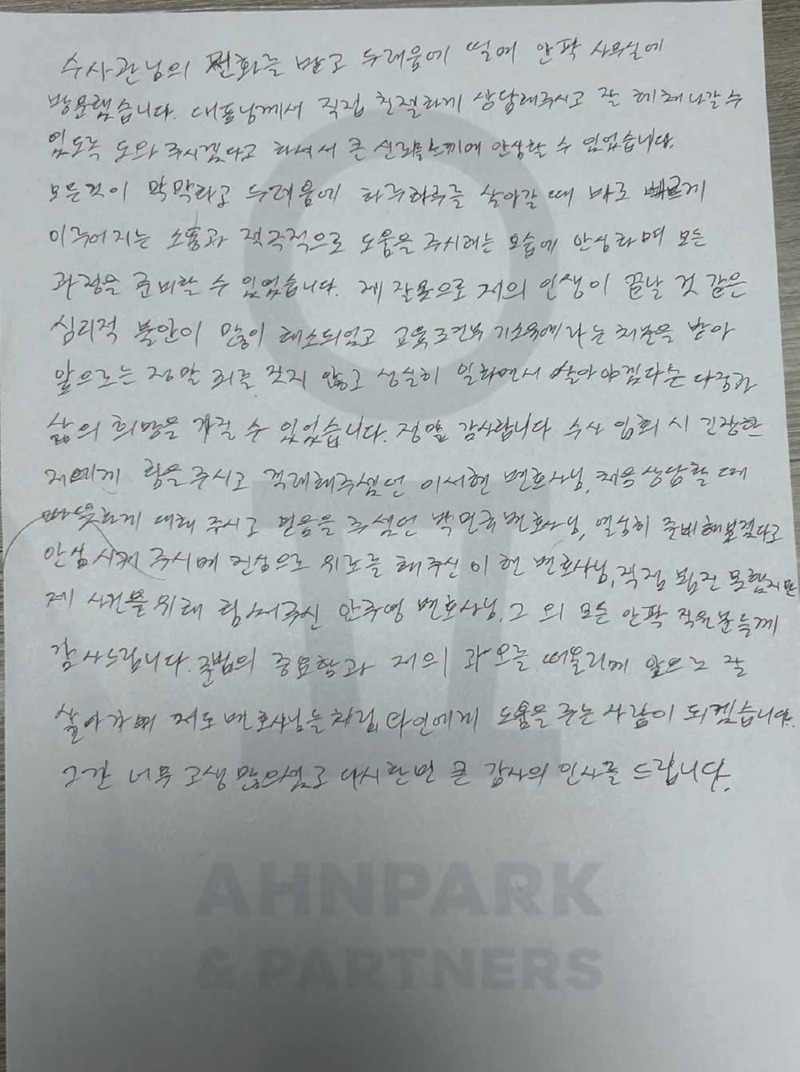 수사관님의 전화를 받고 두려움에 떨며 안팍 사무실에
방문했습니다. 대표님께서 직접 친절하게 상담해주시고 잘 헤쳐나갈 수
있도록 도와주시겠다고 하셔서 큰 신뢰를 느끼며 안심할 수 있었습니다.
모든것이 막막하고 두려움에 하루하루를 살아갈 때 바로 빠르게
이루어지는 소통과 적극적으로 도움을 주시려는 모습에 안심하며 모든
과정을 준비할 수 있었습니다. 제 잘못으로 저의 인생이 끝날 것 같은
심리적 불안이 많이 해소되었고 교육조건부 기소유예라는 처분을 받아
앞으로는 정말 죄를 짓지 않고 성실히 일하면서 살아야겠다는 다짐과
삶의 희망을 가질 수 있었습니다. 정말 감사합니다 수사 입회 시 긴장한
저에게 힘을 주시고 격려해주셨던 이서현 변호사님, 처음 상담할 때
따뜻하게 대해 주시고 믿음을 주셨던 박민규변호사님, 열심히 준비해보겠다고
안심시켜 주시며 진심으로 위로를 해주신 이헌 변호사님, 직접 뵙진 못했지만
제 사건을 위해 힘써주신 안주영 변호사님, 그 외 모든 안팍 직원분들께
감사드립니다. 준법의 중요함과 저의 과오를 떠올리며 앞으로 잘
살아가며 저도 변호사님들처럼 타인에게 도움을 주는 사람이 되겠습니다.
그간 너무 고생 많으셨고 다시한번 큰 감사의 인사를 드립니다.
AHNPARK
& PARTNERS